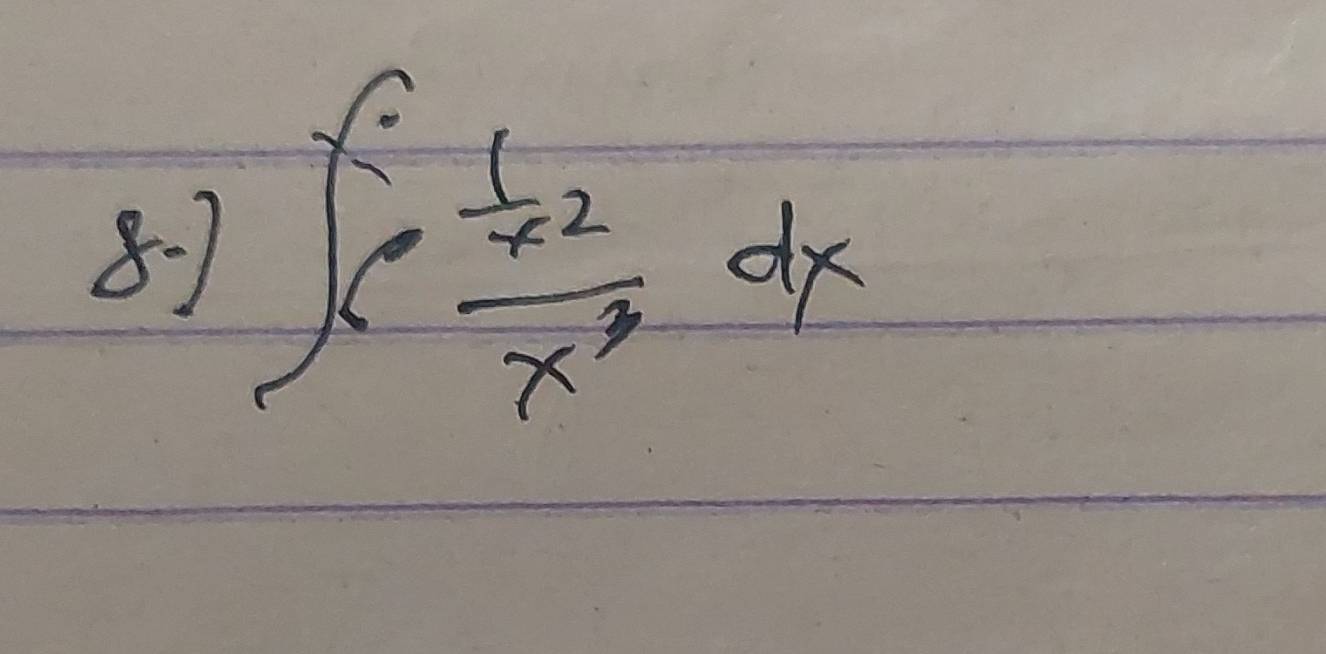 8.) ∫ (1/x²)/x³ dx